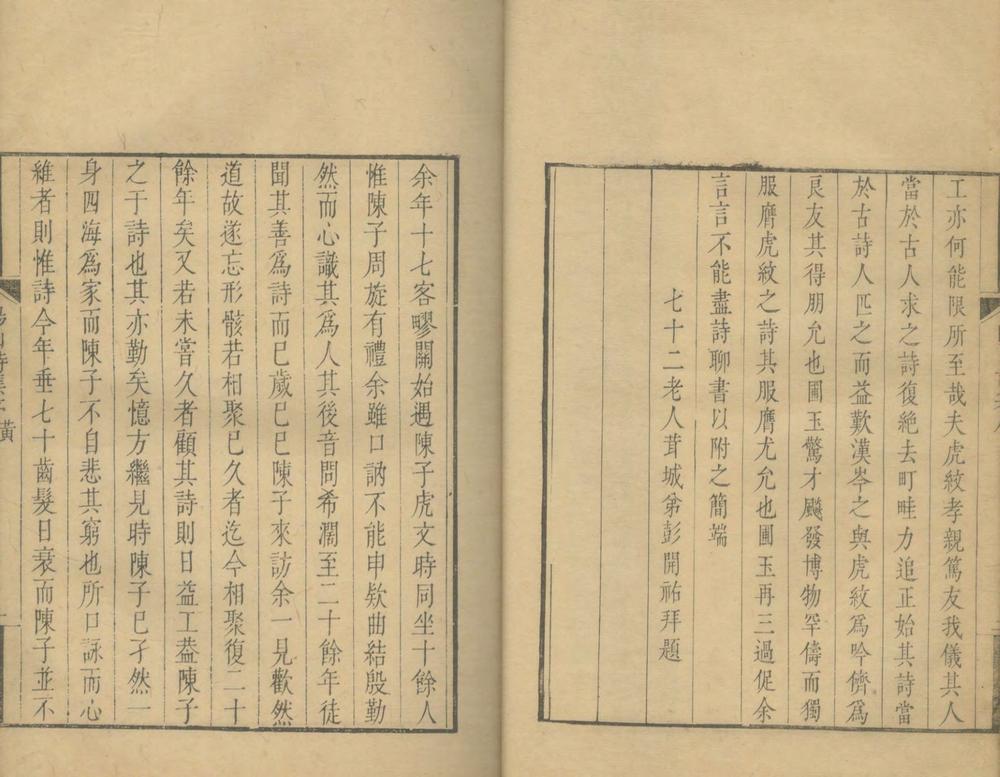 工亦何能限所至哉夫虎紋孝親篤友我儀其人
當於古人求之詩復絶去町畦力追正始其詩當
於古詩人匹之而益歎漢岑之與虎紋爲吟儕爲
良友其得朋允也圃玉驚才飈發博物罕儔而獨
服膺虎紋之詩其服膺尤允也圃玉再三過促余
言言不能盡詩聊書以附之簡端
七十二老人茸城弟彭開祐拜題
余年十七客疁關始遇陳子虎文時同坐十餘人
惟陳子周旋有禮余雖口訥不能申欵曲結殷勤
然而心識其爲人其後音問希濶至二十餘年徒
聞其善爲詩而已歲己巳陳子來訪余一見歡然
道故遂忘形骸若相聚已久者迄今相聚復二十
餘年矣又若未嘗久者顧其詩則日益工葢陳子
之于詩也其亦勤矣憶方繼見時陳子已孑然一
身四海爲家而陳子不自悲其窮也所口詠而心
維者則惟詩今年垂七十齒髮日衰而陳子並不